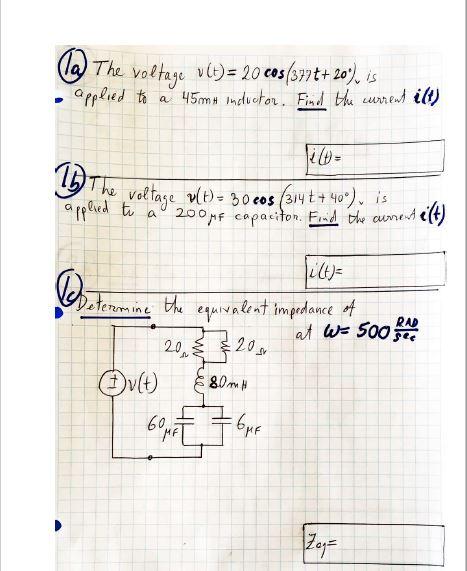 1a) The voltage v(t) = 20 cos(377t + 20°)v is
applied to a 45mH inductor. Find the current i(t)
i(t) =
1b) The voltage v(t) = 30 cos(314t + 40°)v is
applied to a 200μF capacitor. Find the current i(t)
i(t) =
1c) Determine the equivalent impedance of
at ω = 500 RAD/sec
20Ω 20Ω
v(t) 80mH
60μF 6μF
Zeq =